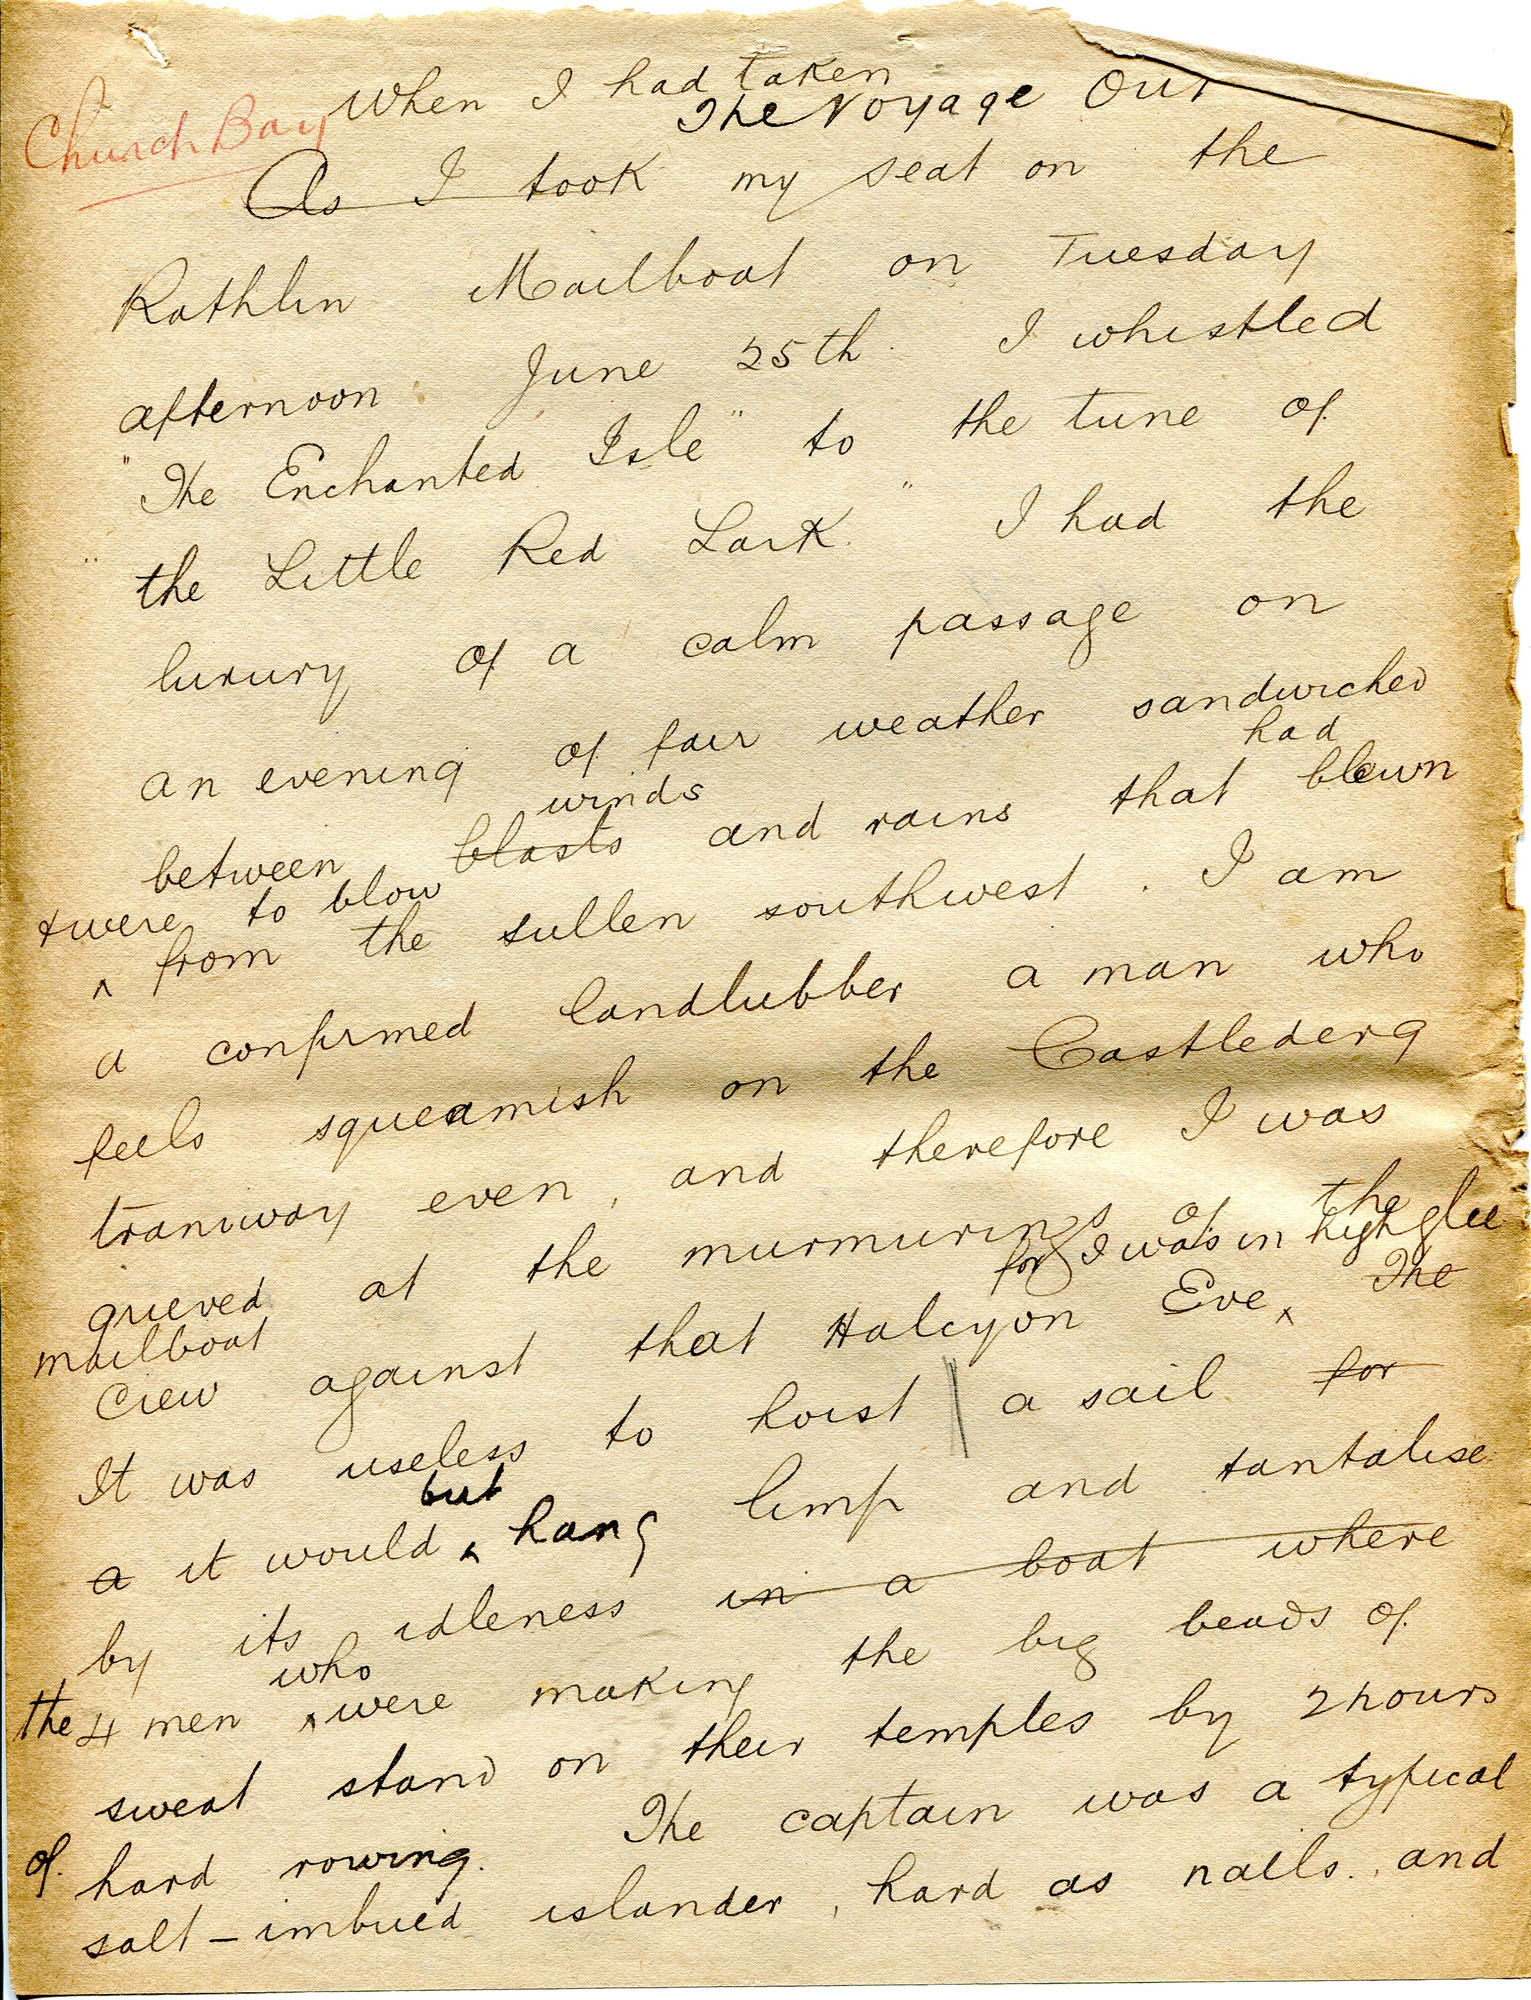 Church Bay
When I had taken
The Voyage Out
As I took my seat on the
Rathlin Mailboat on Tuesday
afternoon. June 25th. I whistled
"The Enchanted Isle" to the tune of
"the Little Red Lark." I had the
luxury of a calm passage on
an evening of fair weather sandwiched
winds had
between blasts and rains that blown
& were to blow
^ from the sullen southwest. I am
a confirmed landlubber a man who
feels squeamish on the Castlederg
tramway even, and therefore I was
grieved at the murmurings of the
mailboat for I was in high glee
crew against that Halcyon Eve ^ The
It was useless to hoist a sail for
but
a it would ^ hang limp and tantalise
by its idleness in a boat where
who
the 4 men ^ were making the big beads of
sweat stand on their temples by 2 hours
of hard rowing. The captain was a typical
salt-imbued islander, hard as nails, and